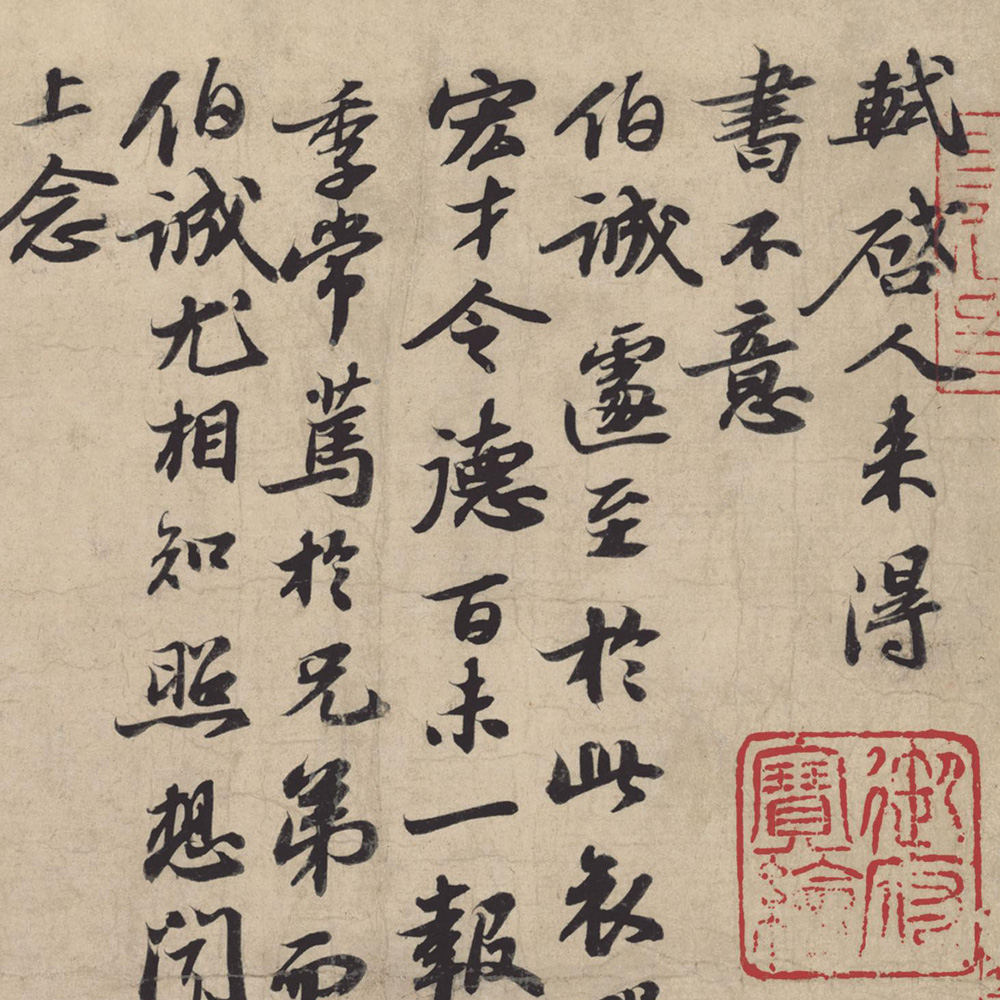 軾啓人来得
書不意
伯誠遽至於此哀
宏才令德百未一報
季常篤於兄弟而
伯誠尤相知照想聞
上念
御府寶繪